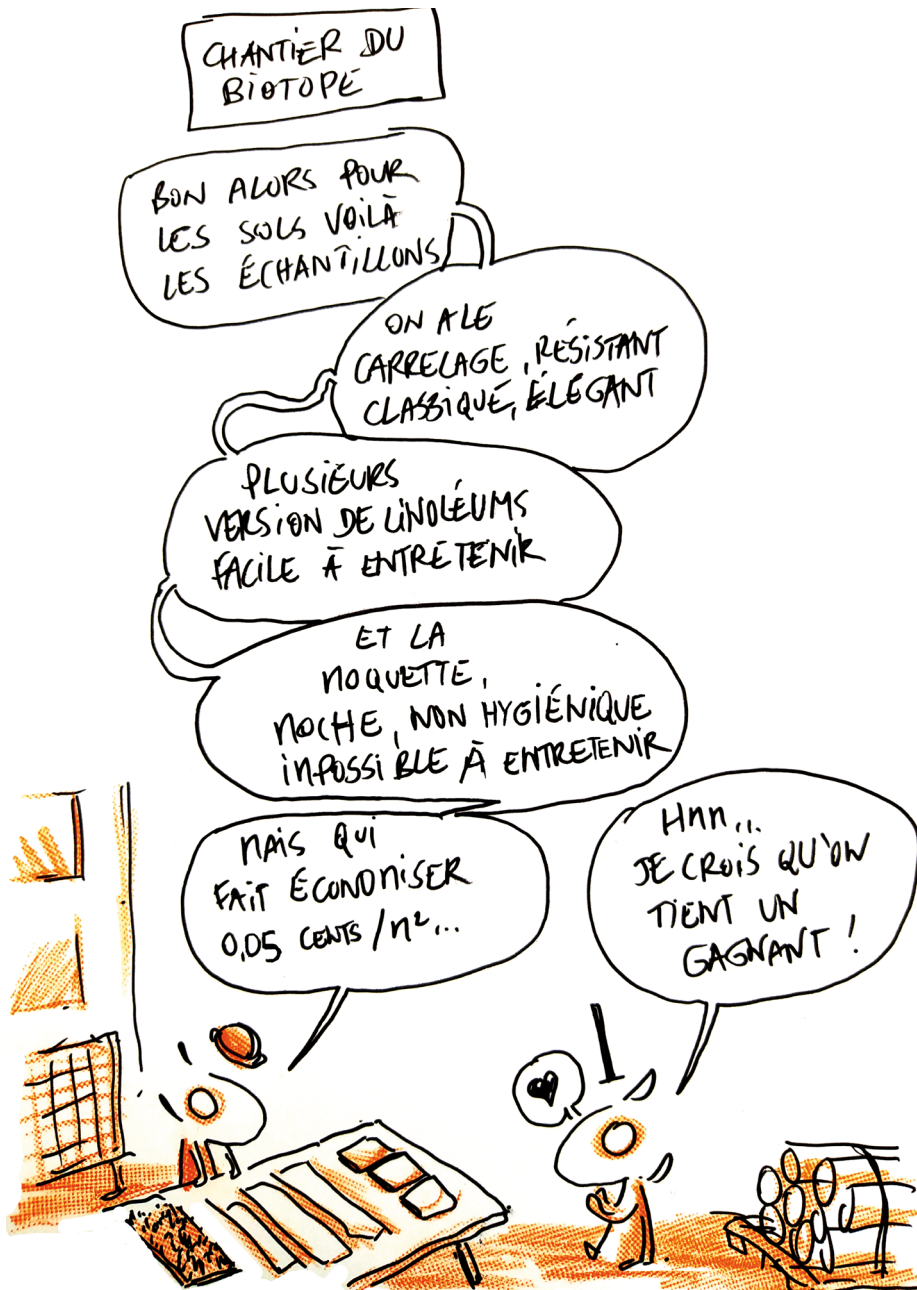 CHANTIER DU
BIOTOPE
BON ALORS POUR
LES SOLS VOILÀ
LES ÉCHANTILLONS
ON A LE
CARRELAGE, RÉSISTANT
CLASSIQUE, ÉLÉGANT
PLUSIEURS
VERSION DE LINOLÉUMS
FACILE À ENTRETENIR
ET LA
MOQUETTE,
MOCHE, NON HYGIÉNIQUE
IMPOSSIBLE À ENTRETENIR
MAIS QUI
FAIT ÉCONOMISER
0,05 CENTS / M²...
HMM...
JE CROIS QU'ON
TIENT UN
GAGNANT !